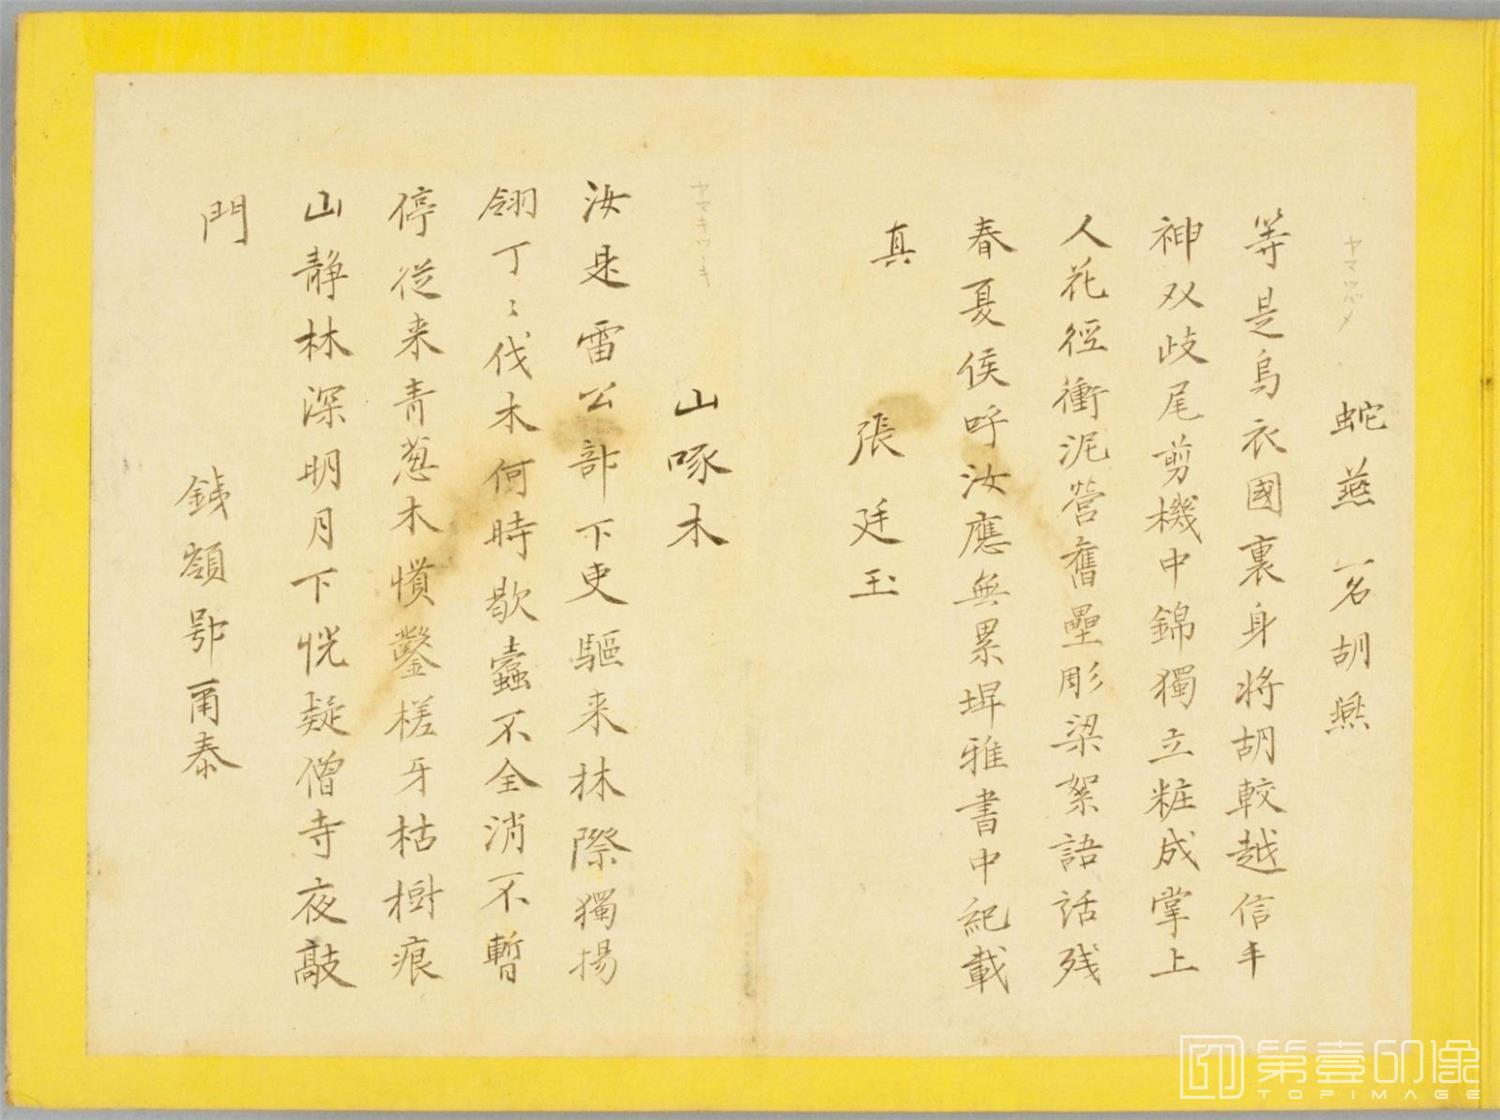 ヤマツバメ
蛇燕 一名胡燕
等是烏衣國裏身将胡較越信手
神双歧尾剪機中錦獨立粧成掌上
人花徑衝泥営舊壘彫梁絮語話残
春夏侯呼汝應無累埤雅書中紀載
真
張廷玉
ヤマキツヽキ
山啄木
汝是雷公部下吏驅来林際獨揚
翎丁〻伐木何時歇蠹不全消不暫
停從来青葱木慣鑿槎牙枯樹痕
山静林深明月下恍疑僧寺夜敲
門
銕嶺鄂甫泰
第壹印像
TOPIMAGE